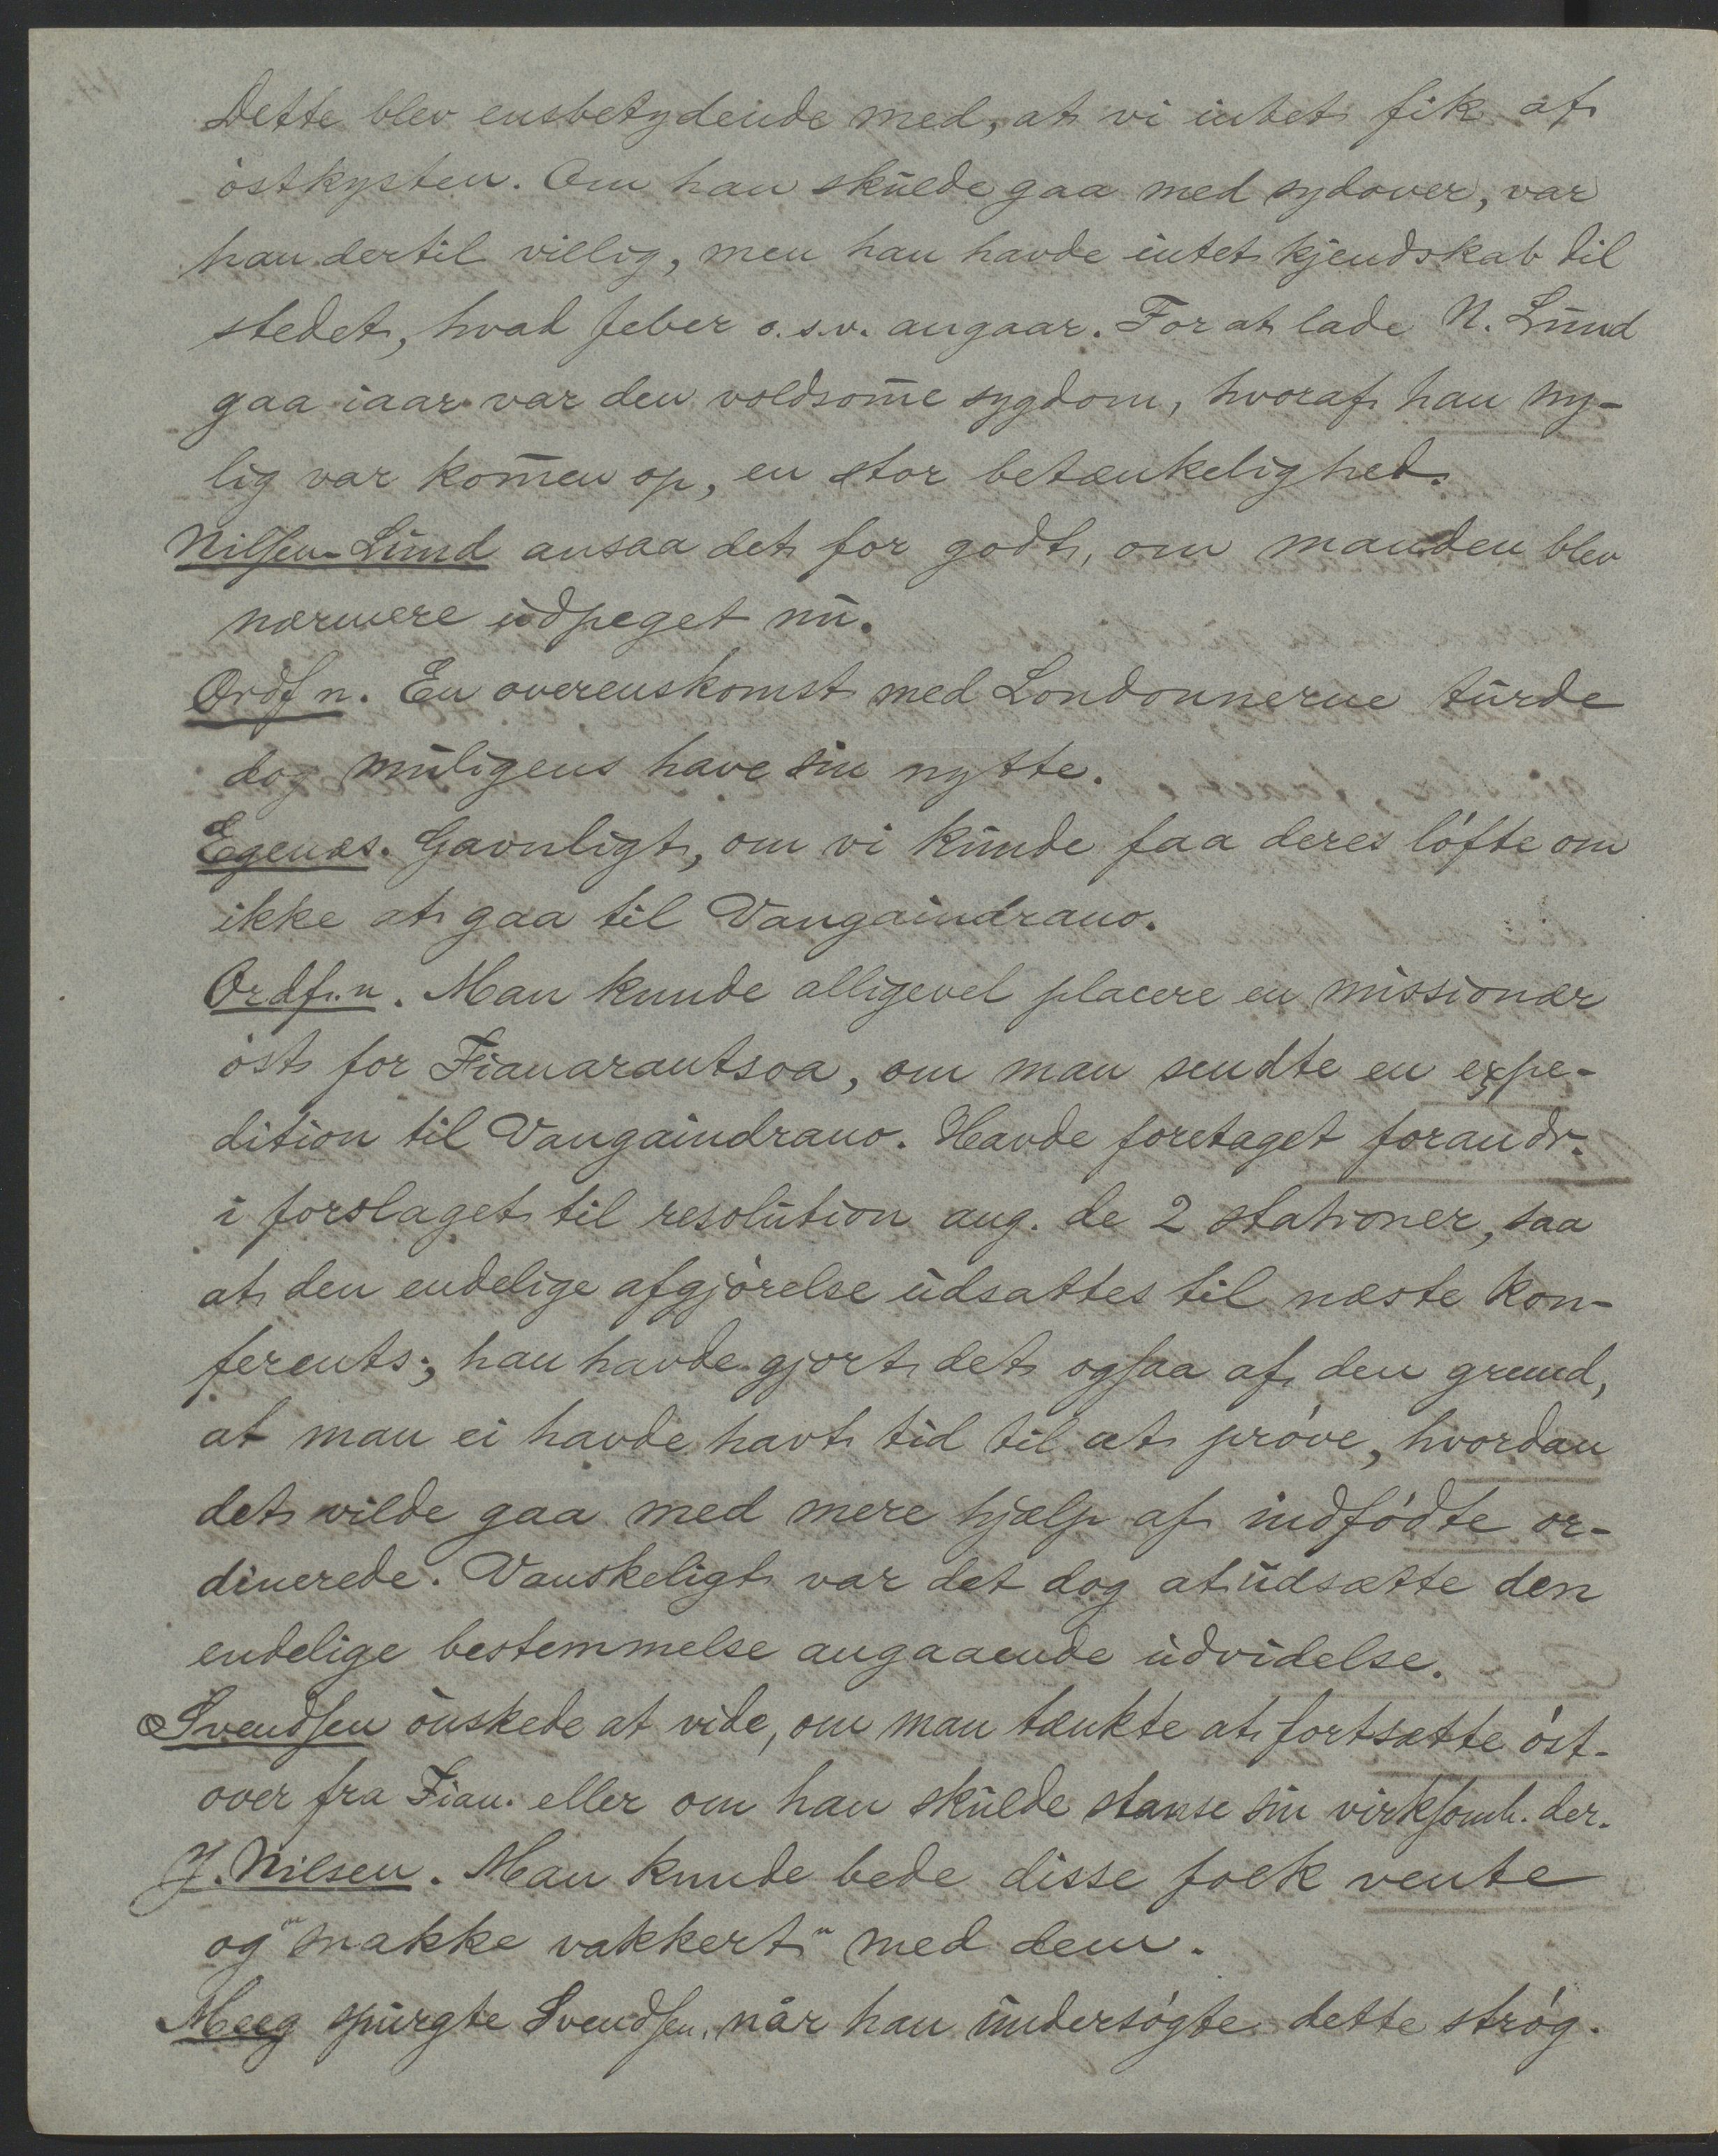 Dette blev ensbetydende med, at vi intet fik af
østkysten. Om han skulde gaa med sydover, var
han dertil villig, men han havde intet kjendskab til
stedet, hvad feber o.s.v. angaar. For at lade N. Lund
gaa iaar var den voldsom̄e sygdom, hvoraf han ny-
lig var kom̄en op, en stor betænkelighed.
Nilsen-Lund ansaa det for godt, om manden blev
nærmere udpeget nu.
Ordf n. En overenskomst med Londonnerne turde
dog muligens have sin nytte.
Egenæs. Gavnligt, om vi kunde faa deres løfte om
ikke at gaa til Vangaindrano.
Ordf.n. Man kunde alligevel placere en missionær
øst for Fianarantsoa, om man sendte en expe-
dition til Vangaindrano. Havde foretaget forandr.
i forslaget til resolution ang. de 2 stationer, saa
at den endelige afgjørelse udsattes til næste kon-
ferents; han havde gjort det ogsaa af den grund,
at man ei havde havt tid til at prøve, hvordan
det vilde gaa med mere hjælp af indfødte or-
dinerede. Vanskeligt var det dog at udsætte den
endelige bestemmelse angaaende udvidelse.
Svendsen ønskede at vide, om man tænkte at fortsætte øst-
over fra Fian. eller om han skulde stanse sin virksomh. der.
J. Nilsen. Man kunde bede disse folk vente
og "snakke vakkert" med dem.
Meeg spurgte Svendsen, når han undersøgte dette strøg.